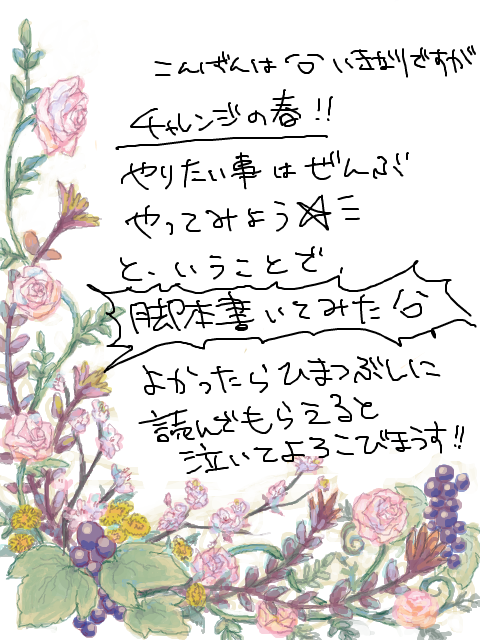 こんばんは いきなりですが
チャレンジの春!!
やりたい事はぜんぶ
やってみよう☆三
と、いうことで、
脚本書いてみた
よかったらひまつぶしに
読んでもらえると
泣いてよろこびまうす!!